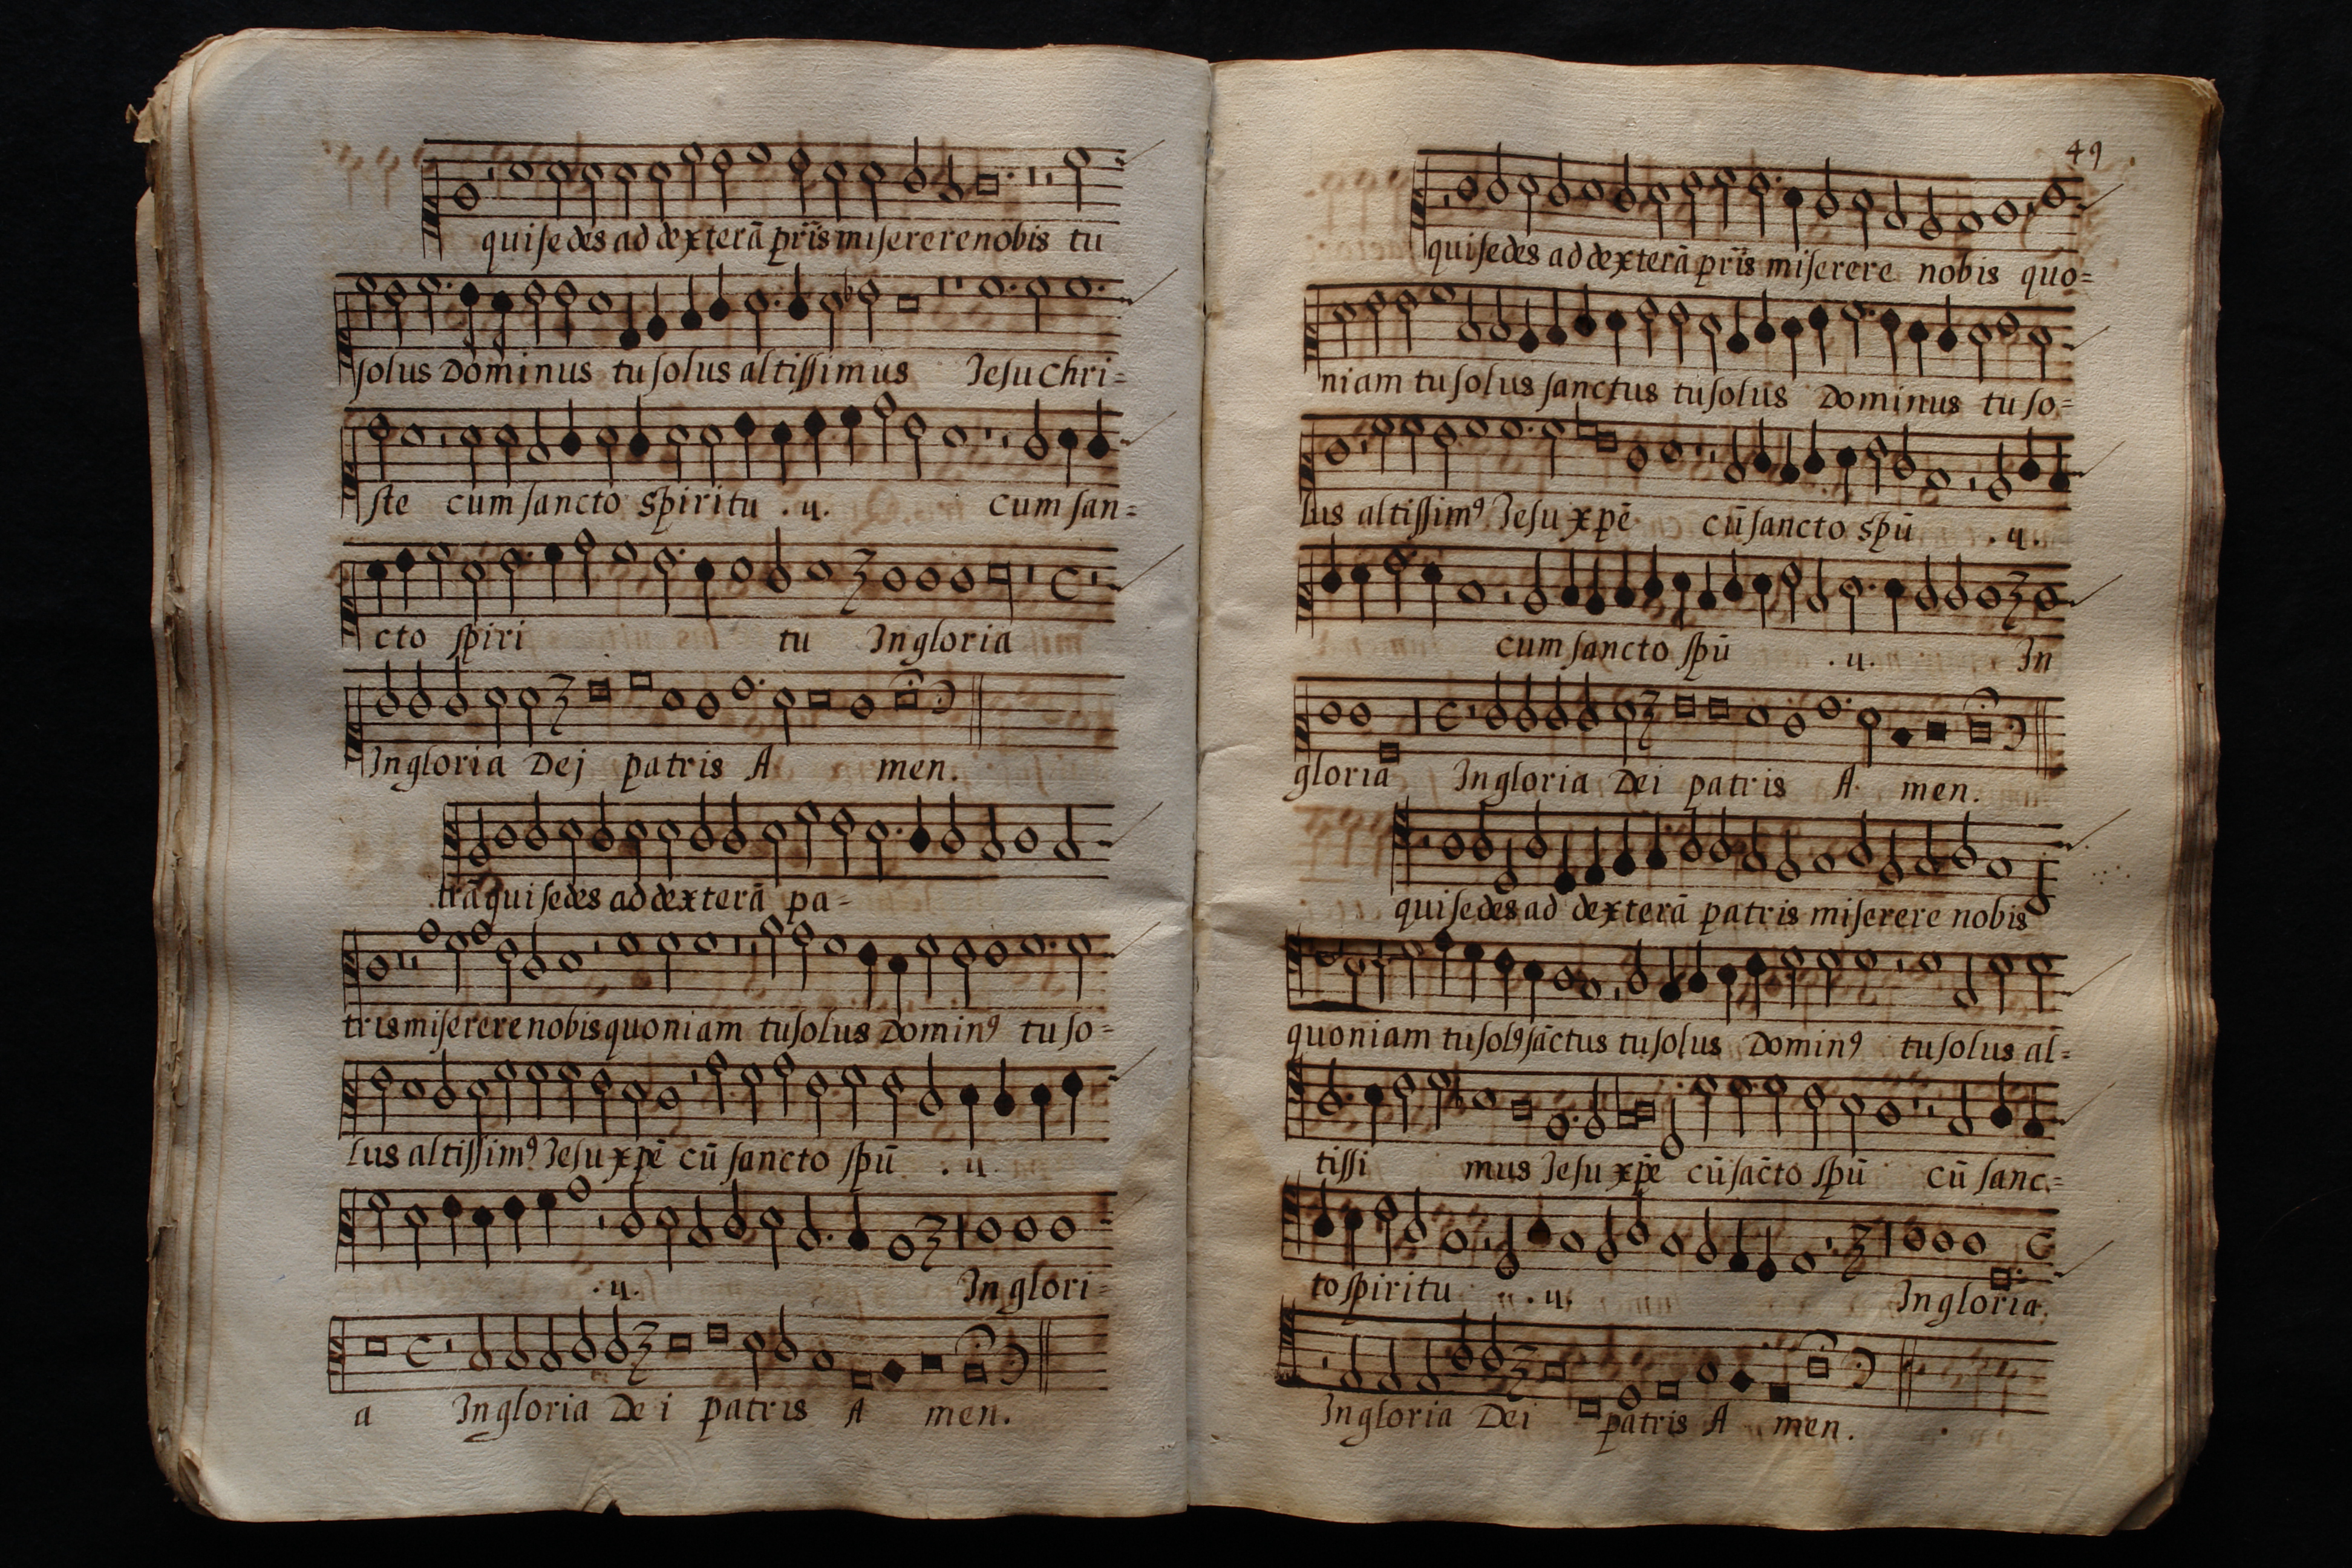 qui sedes ad dexterā pr̄is miserere nobis tu
solus Dominus tu solus altissimus Jesu Chri=
ste cum sancto Spiritu .ij. cum san=
cto spiri tu In gloria
In gloria Dej patris A men.
trā qui sedes ad dexterā pa=
tris miserere nobis quoniam tu solus Dominꝰ tu so=
lus altissimꝰ Jesu xpē cū sancto spū .ij.
.ij. In glori=
a In gloria Dei patris A men.
49
qui sedes ad dexterā pr̄is miserere nobis quo=
niam tu solus sanctus tu solus Dominus tu so=
lus altissimꝰ Jesu xpē cū sancto Spū .ij.
cum sancto spū .ij. In
gloria In gloria Dei patris A men.
qui sedes ad dexterā patris miserere nobis
quoniam tu solꝰ sāctus tu solus Dominꝰ tu solus al=
tissi mus Jesu xpē cū sācto spū cū sanc=
to spiritu .ij. In gloria.
In gloria Dei patris A men.